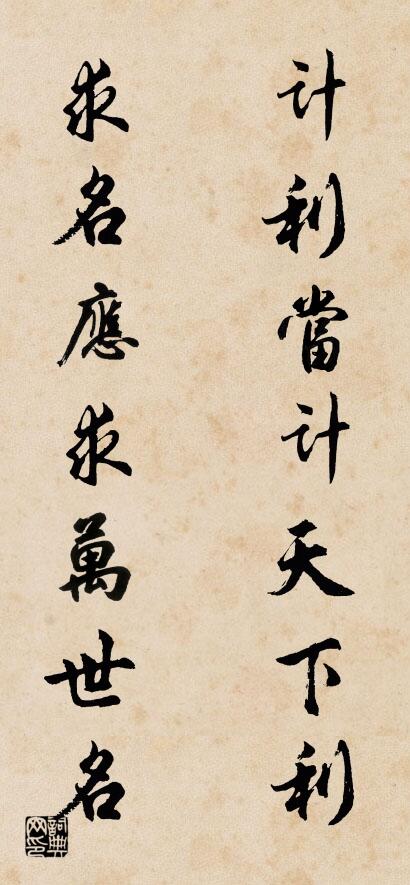 计利當计天下利
求名應求萬世名
詞典网印